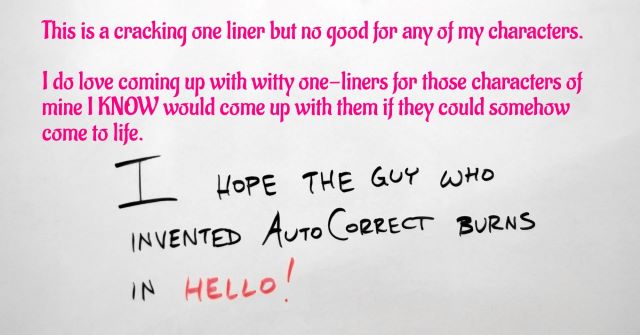 This is a cracking one liner but no good for any of my characters.
I do love coming up with witty one-liners for those characters of
mine I KNOW would come up with them if they could somehow
come to life.
I HOPE THE GUY WHO
INVENTED AUTOCORRECT BURNS
IN HELLO!